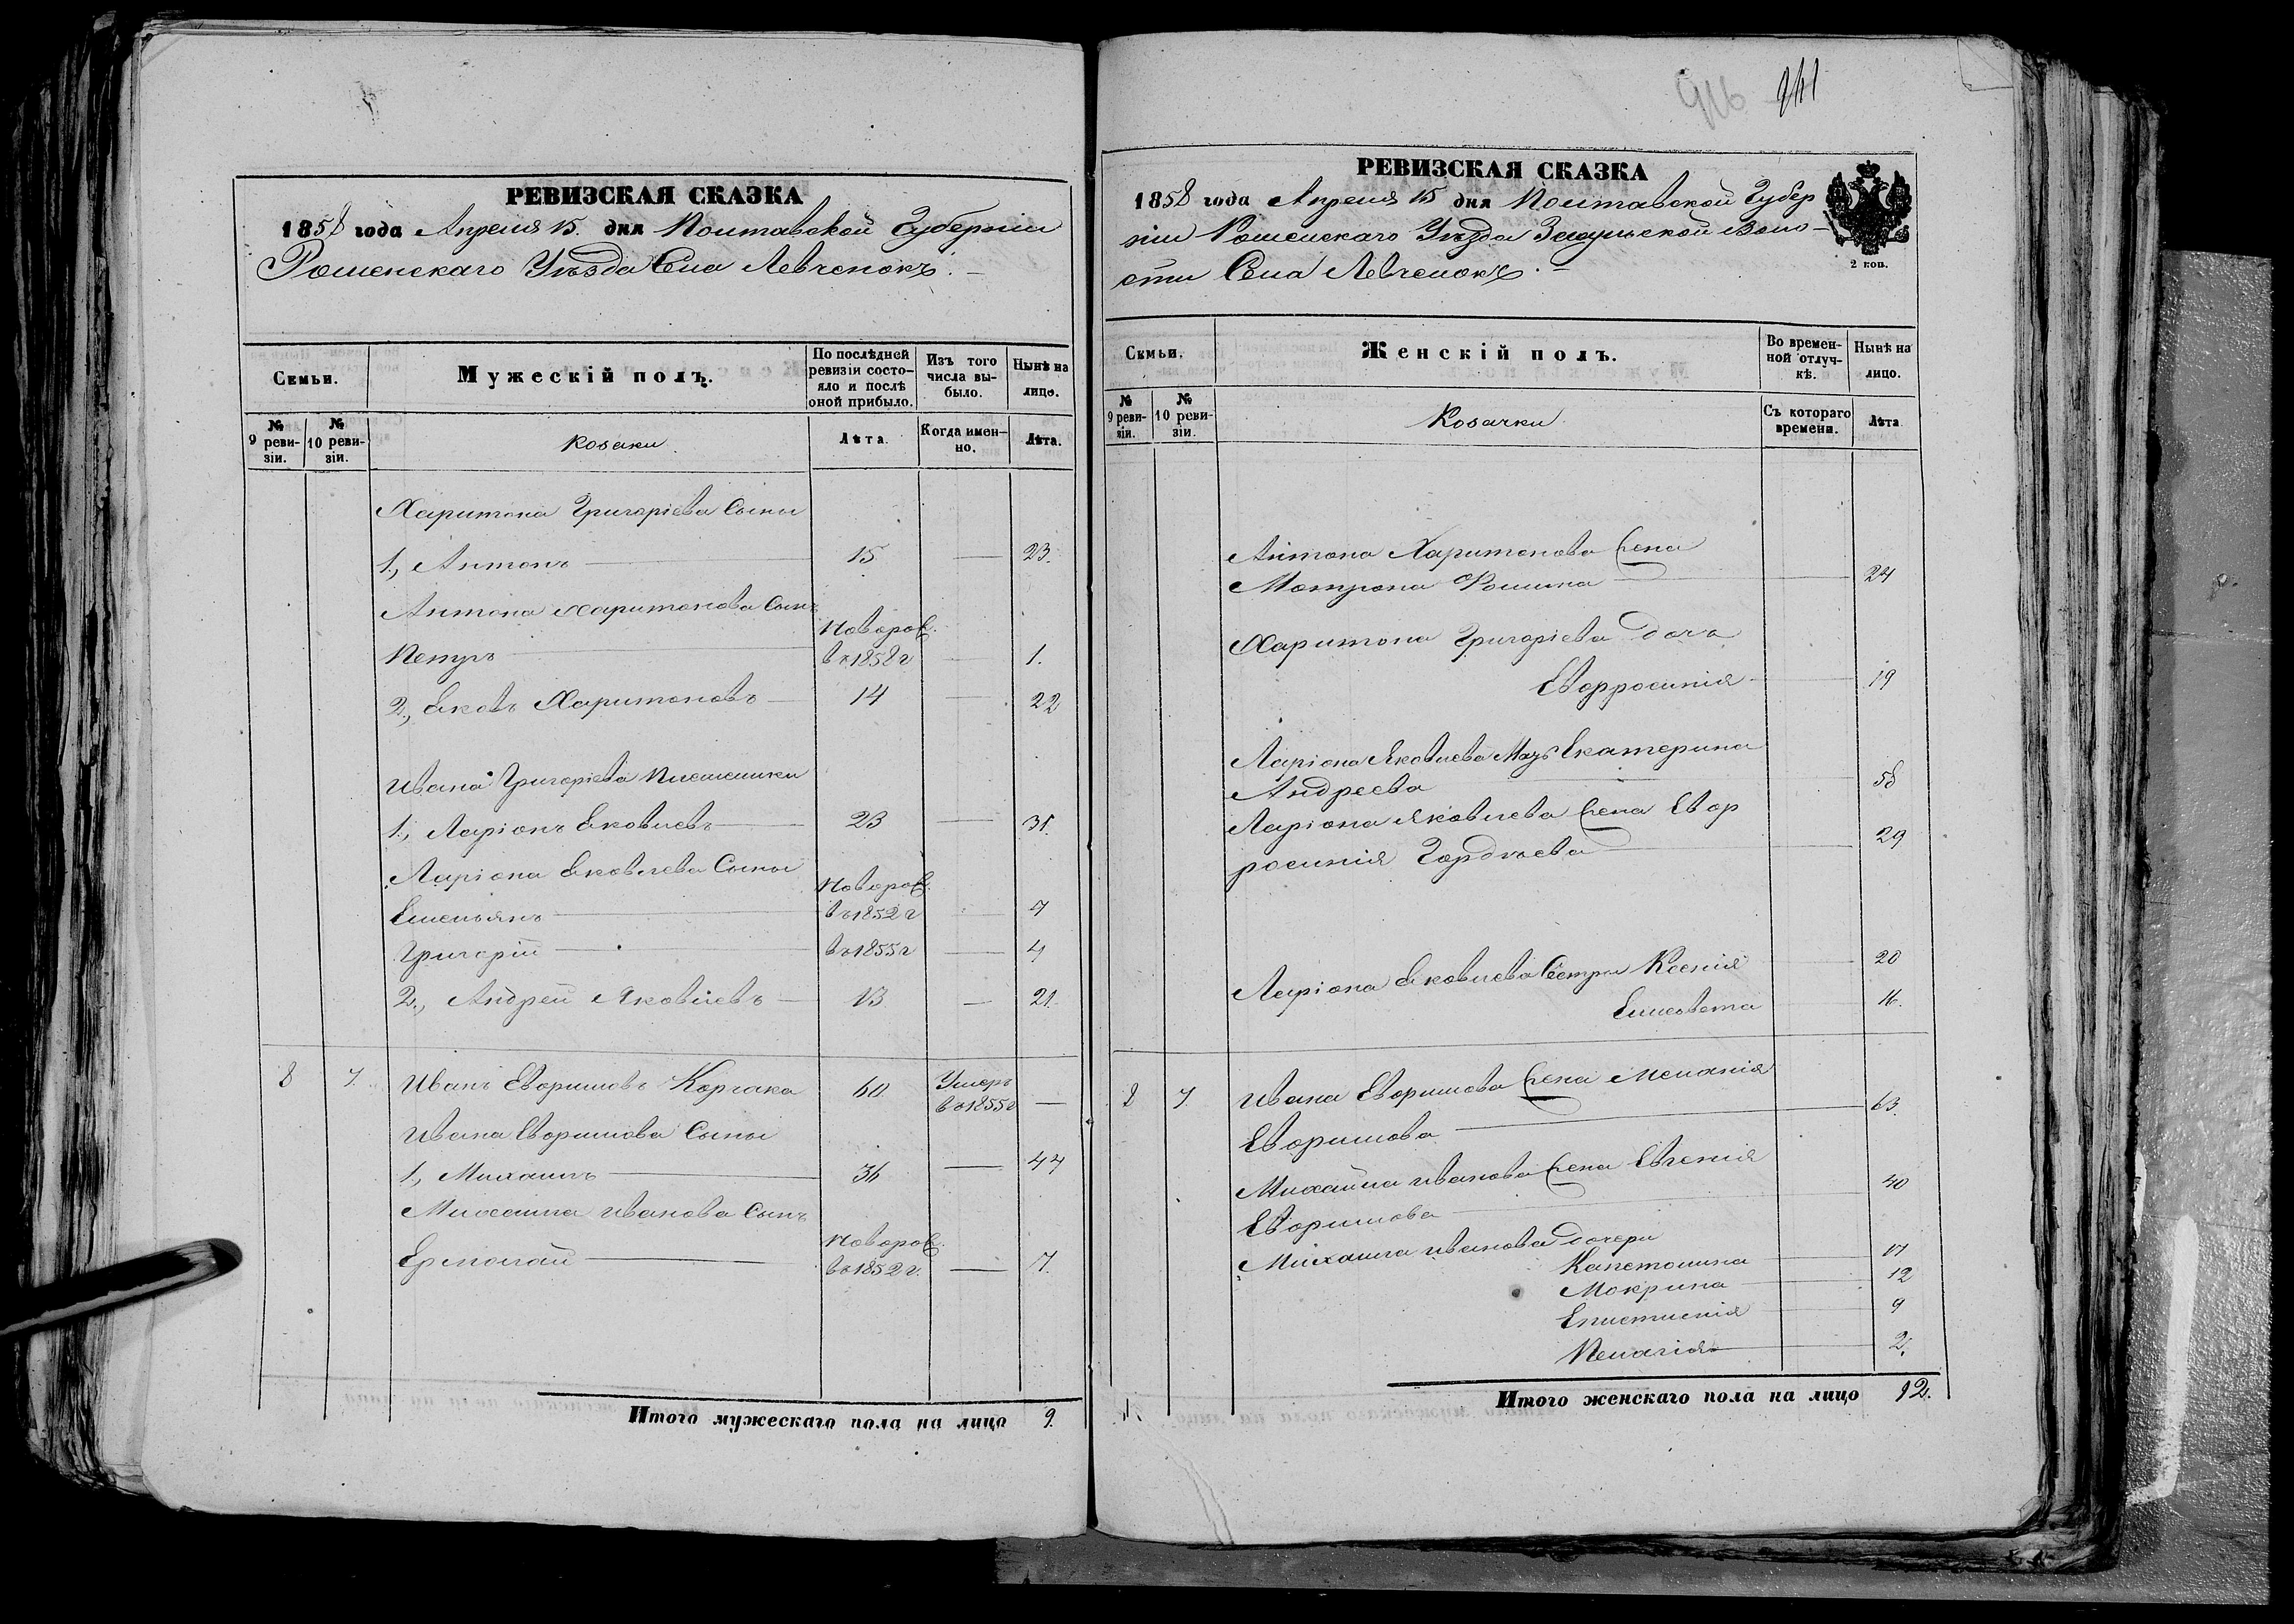 РЕВИЗСКАЯ СКАЗКА
1858 года Апреля 15. дня Полтавской Губерніи
Роменскаго Уѣзда Села Левченокъ.
Семьи.
Мужескій полъ.
По послѣдней ревизіи состояло и послѣ оной прибыло.
Изъ того числа выбыло.
Нынѣ на лицо.
№ 9 ревизіи.
№ 10 ревизіи.
Козаки
Лѣта.
Когда именно.
Лѣта.
Харитона Григоріева Сыны
1., Антонъ 15 23.
Антона Харитонова Сынъ
Новорож.
Петръ въ 1858 г 1.
2., Яковъ Харитоновъ 14 22
Ивана Григоріева Племеники
1., Ларіонъ Яковлевъ 23 31.
Ларіона Яковлева Сыны
Новорож.
Емельянъ въ 1852 г 7
Григорій въ 1855 г 4
2., Андрей Яковлевъ 13 21.
8 7. Иванъ Евфимовъ Корсака 60 Умеръ въ 1855 г
Ивана Евфимова Сыны
1., Михаилъ 36 44
Михаила Иванова Сынъ
Новорож.
Ермолай въ 1852 г. 7.
Итого мужескаго пола на лицо 9.
941
РЕВИЗСКАЯ СКАЗКА
1858 года Апреля 15 дня Полтавской Губер
ніи Роменскаго Уѣзда Засульской Воло-
сти Села Левченокъ.
2 коп.
Семьи.
Женскій полъ.
Во временной отлучкѣ.
Нынѣ на лицо.
№ 9 ревизіи.
№ 10 ревизіи.
Козачки
Съ котораго времени.
Лѣта
Антона Харитонова Жена
Мотрона Фомина 24
Харитона Григоріева дочь
Евфросинія 19
Ларіона Яковлева Мать Екатерина
Андреева 58
Ларіона Яковлева Жена Евф
росинія Гордѣева 29
Ларіона Яковлева Сестры Ксенія 20
Елисовета 16.
8 7. Ивана Евфимова Жена Меланія
Евфимова 63.
Михайла Иванова Жена Евгенія
Евфимова 40
Михаила Иванова дочери
Капетолина 17
Мокрина 12
Епистимія 9
Пелагія 2.
Итого женскаго пола на лицо 12.